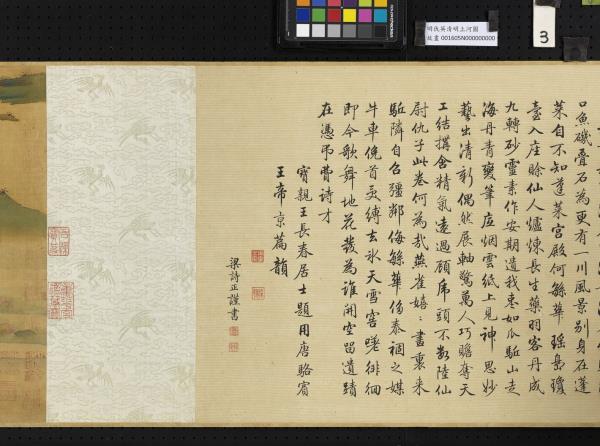 明仇英清明上河圖
故畫 001605N000000000
3
口魚磯疊石為更有一川風景別身在蓬
萊自不知蓬萊宮殿何繇華瑤島瓊
臺入座賒仙人爐煉長生藥羽客丹成
九轉砂靈素作安期遺我棗如瓜駈山走
海丹青變筆底烟雲紙上見神思妙
藝出清新偶然展軸驚萬人巧贍奪天
工結撰含精氣遠過顧虎頭不數陸仙
尉仇子此卷何為哉燕雀嬉〻書裏來
駈隣自召彊鄰侮繇華侈泰禍之媒
牛車俛首縛玄氷天雪窖嗟徘徊
即今歌舞地花發為誰開空留遺蹟
在憑弔費詩才
寶親王長春居士題用唐駱賓
王帝京篇韻
梁詩正謹書